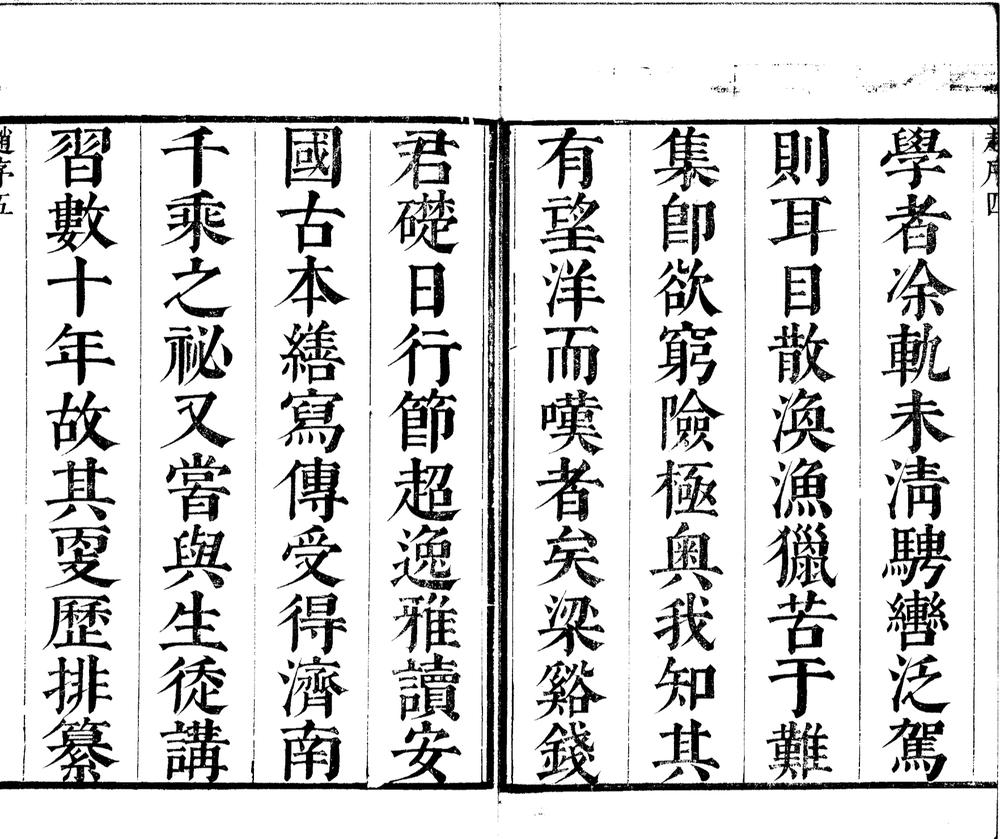 趙序四
學者涂軌未清騁轡泛駕
則耳目散渙漁獵苦于難
集卽欲窮險極奧我知其
有望洋而嘆者矣梁谿錢
君礎日行節超逸雅讀安
國古本繕寫傳受得濟南
千乘之祕又嘗與生徒講
習數十年故其䨱歷排纂
趙序五